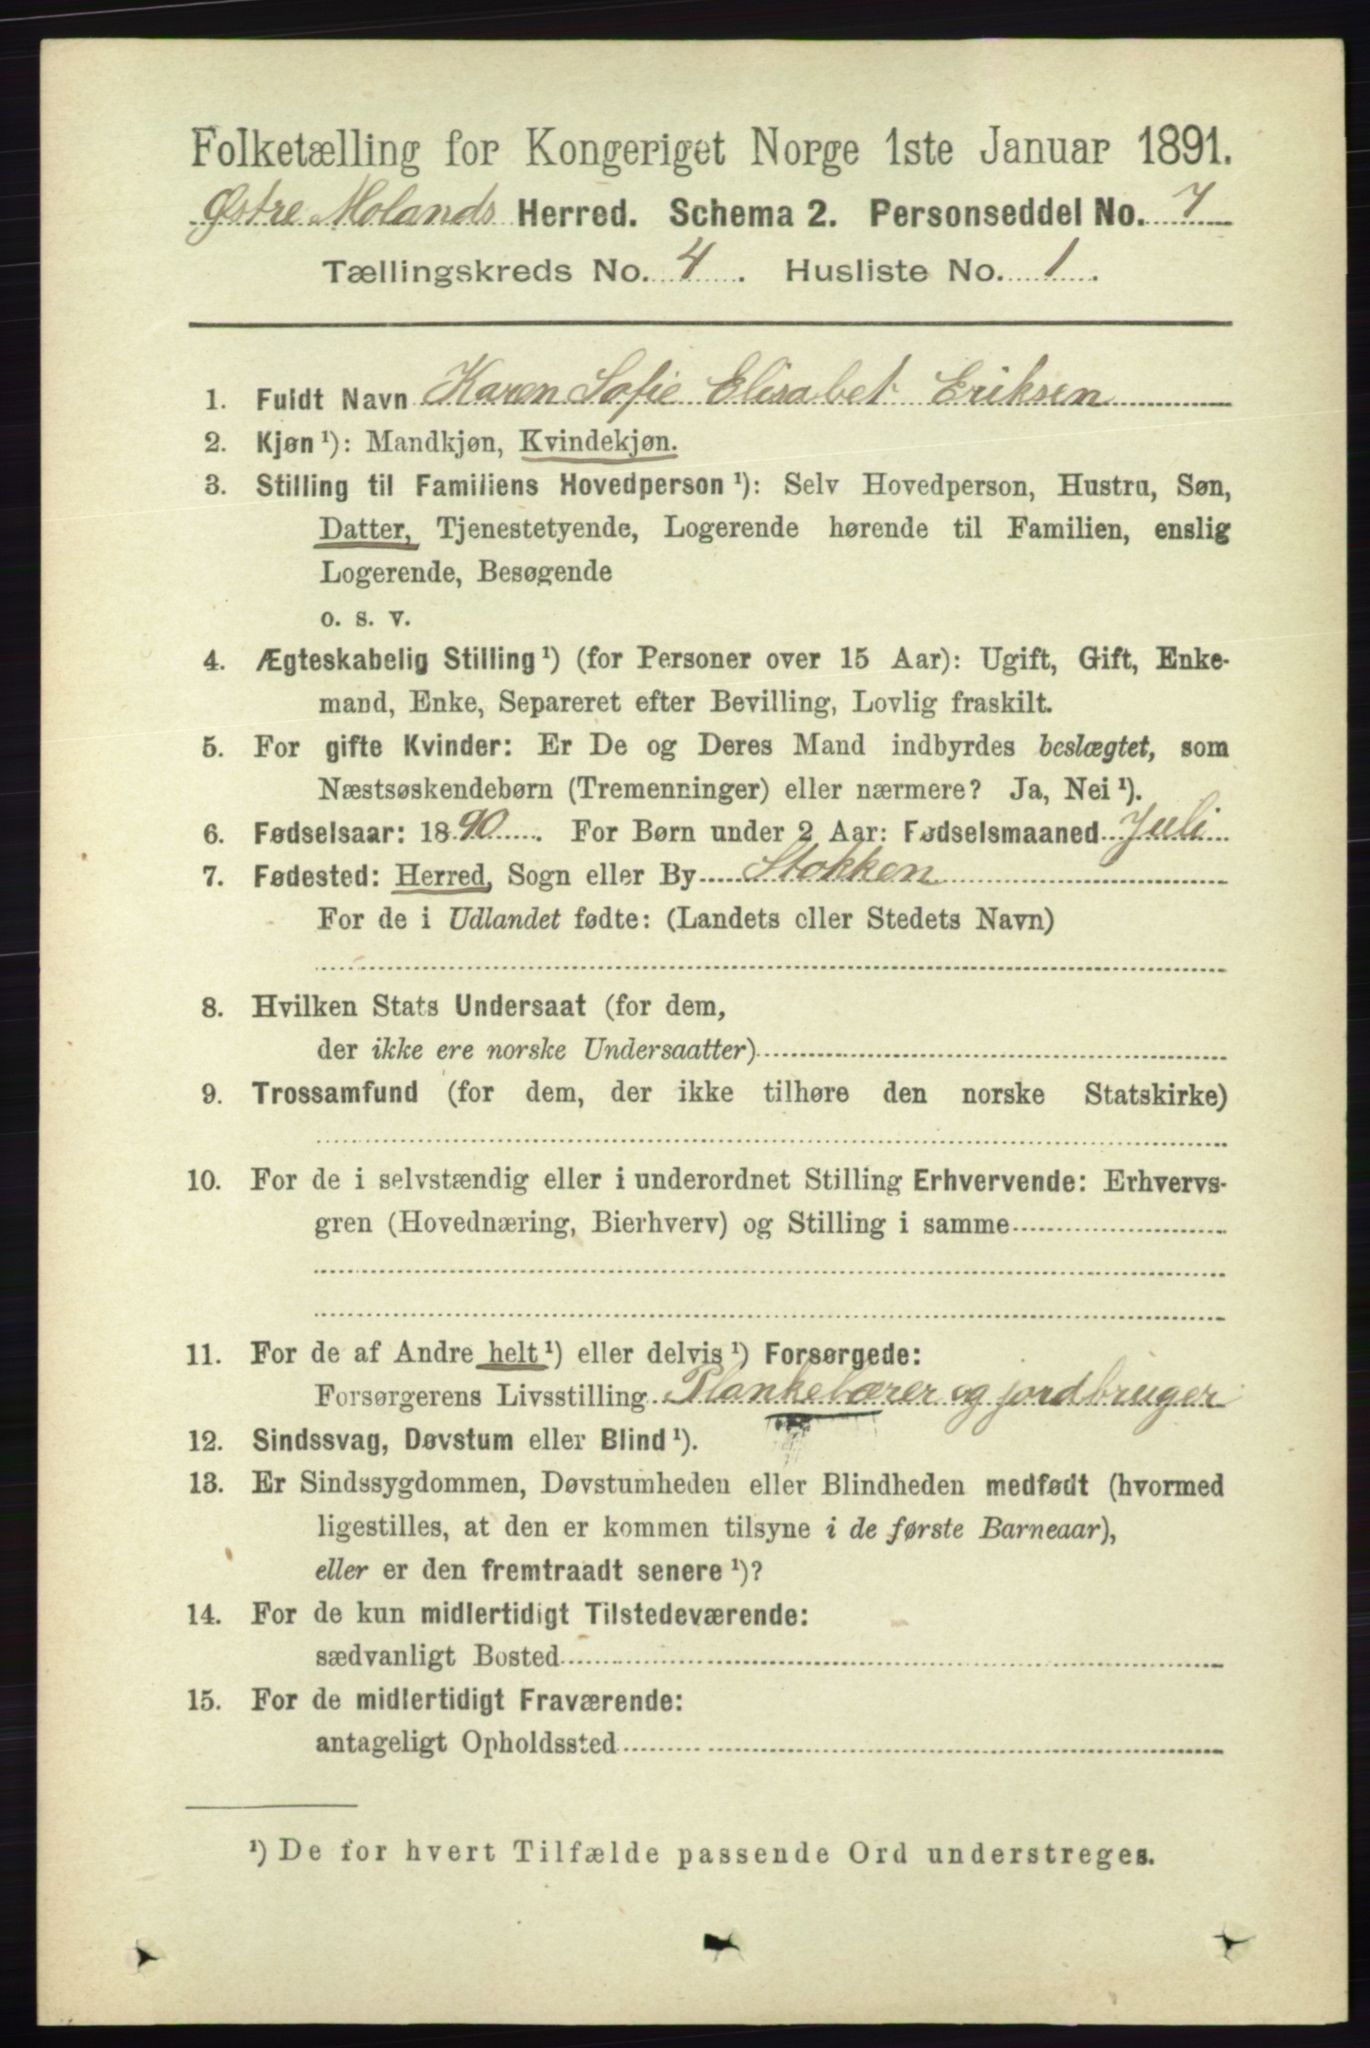 Folketælling for Kongeriget Norge 1ste Januar 1891.
Østre Molands Herred. Schema 2. Personseddel No. 7
Tællingskreds No. 4. Husliste No. 1.
1. Fuldt Navn Karen Sofie Elisabet Eriksen
2. Kjøn¹): Mandkjøn, Kvindekjøn.
3. Stilling til Familiens Hovedperson¹): Selv Hovedperson, Hustru, Søn,
Datter, Tjenestetyende, Logerende hørende til Familien, enslig
Logerende, Besøgende
o. s. v.
4. Ægteskabelig Stilling¹) (for Personer over 15 Aar): Ugift, Gift, Enke-
mand, Enke, Separeret efter Bevilling, Lovlig fraskilt.
5. For gifte Kvinder: Er De og Deres Mand indbyrdes beslægtet, som
Næstsøskendebørn (Tremenninger) eller nærmere? Ja, Nei¹).
6. Fødselsaar: 1890. For Børn under 2 Aar: Fødselsmaaned Juli
7. Fødested: Herred, Sogn eller By Stokken
For de i Udlandet fødte: (Landets eller Stedets Navn)
8. Hvilken Stats Undersaat (for dem,
der ikke ere norske Undersaatter)
9. Trossamfund (for dem, der ikke tilhøre den norske Statskirke)
10. For de i selvstændig eller i underordnet Stilling Erhvervende: Erhvervs-
gren (Hovednæring, Bierhverv) og Stilling i samme
11. For de af Andre helt¹) eller delvis¹) Forsørgede:
Forsørgerens Livsstilling Plankebærer og jordbruger
12. Sindssvag, Døvstum eller Blind¹).
13. Er Sindssygdommen, Døvstumheden eller Blindheden medfødt (hvormed
ligestilles, at den er kommen tilsyne i de første Barneaar),
eller er den fremtraadt senere¹)?
14. For de kun midlertidigt Tilstedeværende:
sædvanligt Bosted
15. For de midlertidigt Fraværende:
antageligt Opholdssted
¹) De for hvert Tilfælde passende Ord understreges.